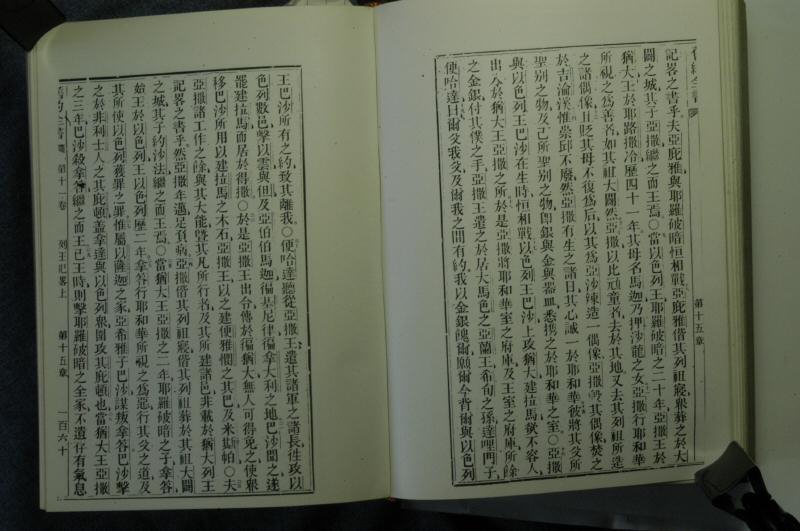 記畧之書乎夫亞庇雅與耶羅破暗恒相戰亞庇雅偕其列祖寢眾葬之於大
闢之城其子亞撒繼之而王焉○當以色列王耶羅破暗之二十年亞撒王於
猶大王於耶路撒冷歷四十一年其母名馬迦乃押沙龍之女亞撒行耶和華
所視之爲善者如其祖大闢然亞撒以比頑童者去於其地又去其列祖所造
之諸偶像且貶其母不復爲后以其爲亞沙辣造一偶像亞撒毀其偶像焚之
於吉淪溪惟崇邱不廢然亞撒有生之諸日其心誠一於耶和華彼將其父所
聖别之物及己所聖别之物卽銀與金與器皿悉携之於耶和華之室○亞撒
與以色列王巴沙在生時恒相戰以色列王巴沙上攻猶大建拉馬欲不容人
出入於猶大王亞撒之所於是亞撒將耶和華室之府庫及王室之府庫所餘
之金銀付其僕之手亞撒王遣之於居大馬色之亞蘭王希旬之孫達哩門子
便哈達曰爾父我父及爾我之間有約我以金銀餽爾願爾今背爾與以色列
第十五章
王巴沙所有之約致其離我○便哈達聽從亞撒王遣其諸軍之諸長徃攻以
色列數邑擊以雲與但及亞伯馬迦徧基尼律徧拿大利之地巴沙聞之遂
罷建拉馬而居於得撒○於是亞撒王出令傳於徧猶大無人可得免之使眾
移巴沙所用以建拉馬之木石亞撒王以之建便雅憫之其巴及米斯帕○夫
亞撒諸工作之餘與其大能曁其凡所行者及其所建諸邑非載於猶大列王
記畧之書乎然亞撒年邁足負病亞撒偕其列祖寢偕其列祖葬於其祖大闢
之城其子約沙法繼之而王焉○當猶大王亞撒之二年耶羅破暗之子拿答
始王於以色列王以色列歷二年拿答行耶和華所視之爲惡行其父之道及
其所使以色列獲罪之罪惟屬以薩迦之家亞希雅子巴沙謀叛拿答巴沙擊
之於非利士人之其庇頓蓋拿達與以色列眾圍攻其庇頓也當猶大王亞撒
之三年巴沙殺拿答繼之而王已王時則擊耶羅破暗之全家不遺仔有氣息
舊約全書 第十一卷 列王紀畧上 第十五章 一百六十